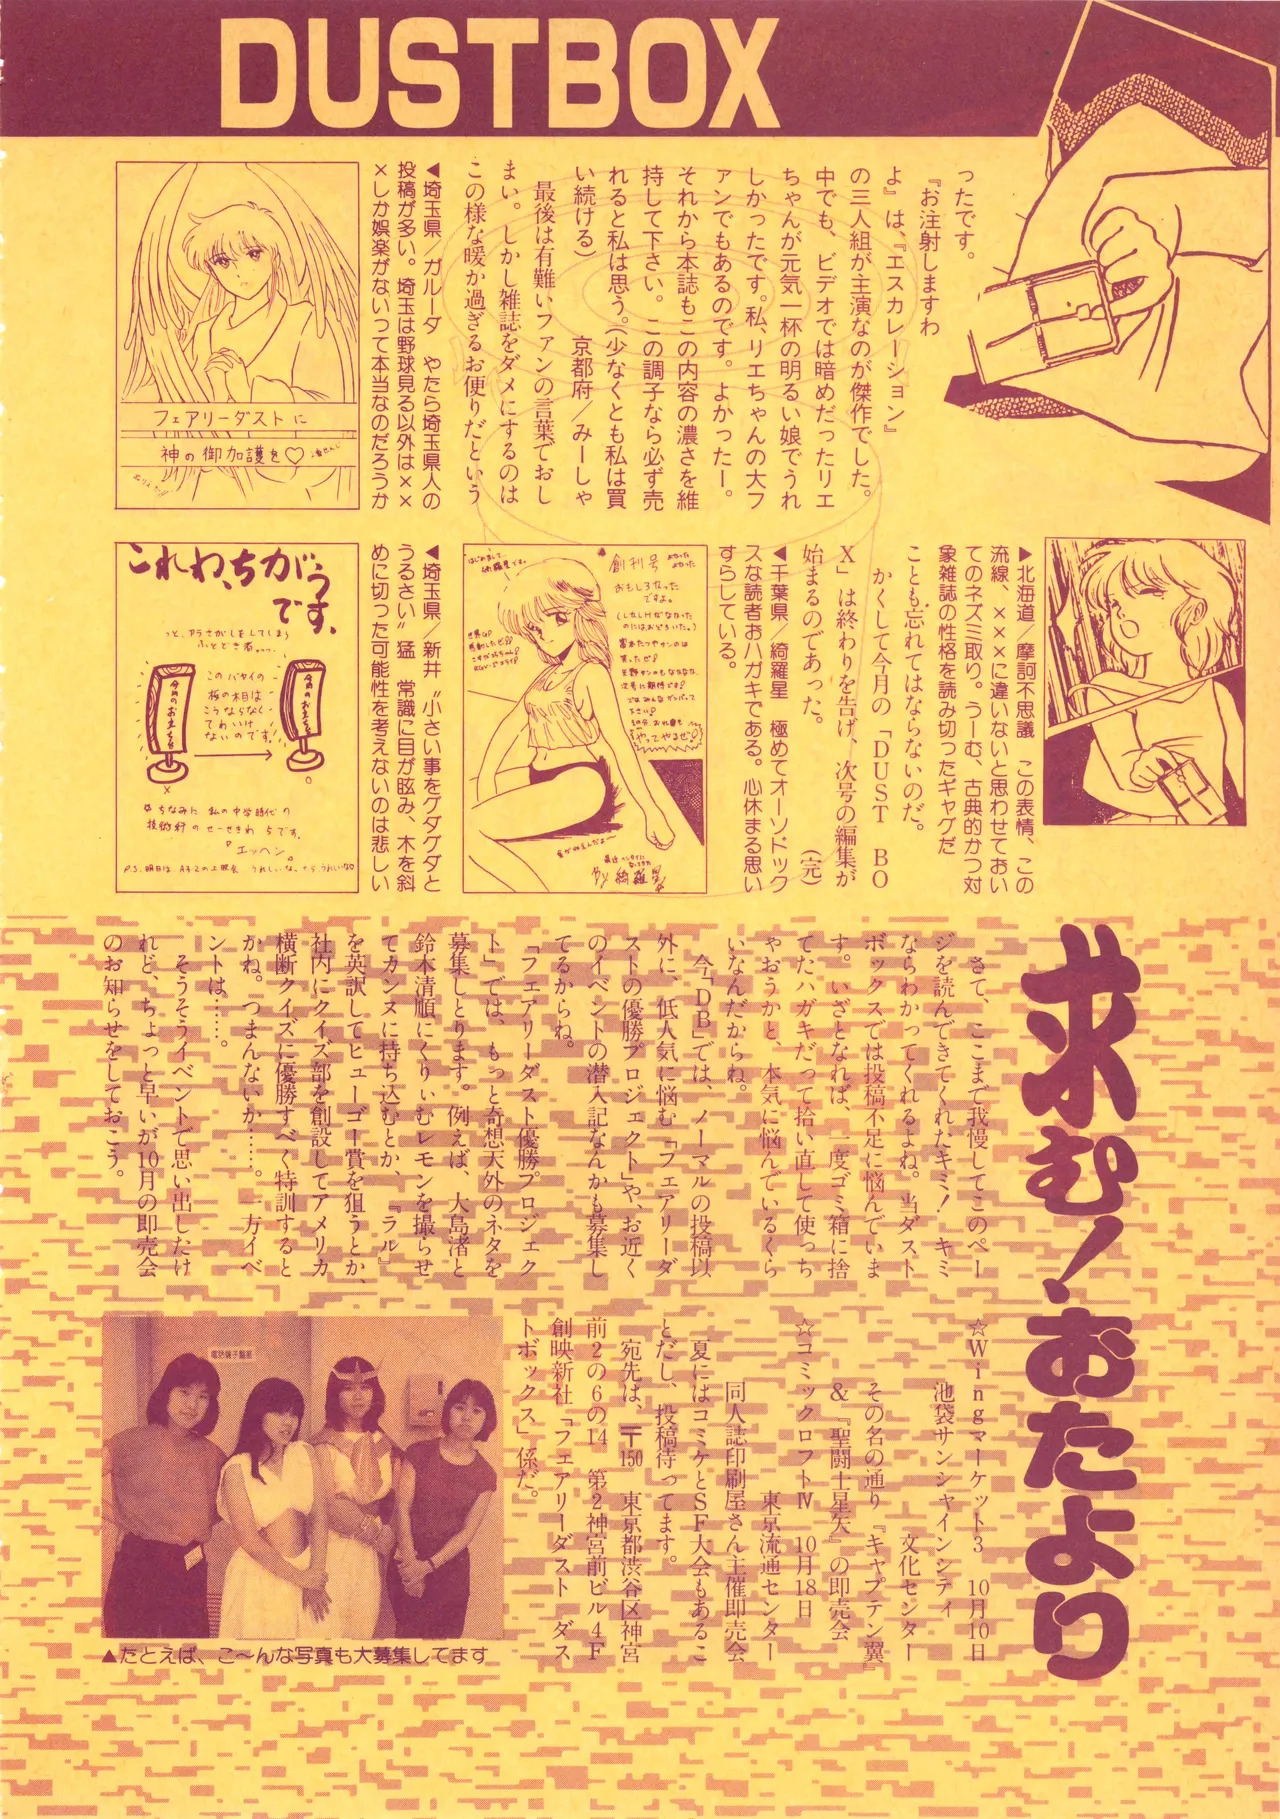 DUSTBOX
ったです。
『お注射しますわ
よ』は、『エスカレーション』
の三人組が主演なのが傑作でした。
中でも、ビデオでは暗めだったリエ
ちゃんが元気一杯の明るい娘でうれ
しかったです。私、リエちゃんの大フ
ァンでもあるのです。よかったー。
それから本誌もこの内容の濃さを維
持して下さい。この調子なら必ず売
れると私は思う。(少なくとも私は買
い続ける)　京都府／みーしゃ
最後は有難いファンの言葉でおし
まい。しかし雑誌をダメにするのは
この様な暖か過ぎるお便りだという
◀埼玉県／ガルーダ　やたら埼玉県人の
投稿が多い。埼玉は野球見る以外は××
×しか娯楽がないって本当なのだろうか
フェアリーダストに
神の御加護を♡
▶北海道／摩訶不思議　この表情、この
流線、×××に違いないと思わせておい
てのネズミ取り。うーむ、古典的かつ対
象雑誌の性格を読み切ったギャグだ
ことも忘れてはならないのだ。
かくして今月の「DUST　BO
X」は終わりを告げ、次号の編集が
始まるのであった。　(完)
◀千葉県／綺羅星　極めてオーソドック
スな読者おハガキである。心休まる思い
すらしている。
はじめまして
綺羅星です。
創刊号
よかった
よかった
おもしろなった
ですよ。
by 綺羅星
◀埼玉県／新井　〝小さい事をグダグダと
うるさい〟猛　常識に目が眩み、木を斜
めに切った可能性を考えないのは悲しい
これわ、ちがう
です、
っと、アラさがしをしてしまう
ふとどき者……
このバヤイの
板の木目は
こうならなくし
てわいけ
ないのです!
☆ちなみに 私の中学時代の
技術科のせーせきわ 5です。
『エッヘン。』
求む！おたより
さて、ここまで我慢してこのペー
ジを読んできてくれたキミ！　キミ
ならわかってくれるよね。当ダスト
ボックスでは投稿不足に悩んでいま
す。いざとなれば、一度ゴミ箱に捨
てたハガキだって拾い直して使っち
ゃおうかと、本気に悩んでいるくら
いなんだからね。
今「DB」では、ノーマルの投稿以
外に、低人気に悩む「フェアリーダ
ストの優勝プロジェクト」や、お近く
のイベントの潜入記なんかも募集し
てるからね。
「フェアリーダスト優勝プロジェク
ト」では、もっと奇想天外のネタを
募集しとります。例えば、大島渚と
鈴木清順にくりぃむレモンを撮らせ
てカンヌに持ち込むとか、『ラル』
を英訳してヒューゴー賞を狙うとか、
社内にクイズ部を創設してアメリカ
横断クイズに優勝すべく特訓すると
かね。つまんないか……。一方イベ
ントは……。
そうそうイベントで思い出したけ
れど、ちょっと早いが10月の即売会
のお知らせをしておこう。
☆Wingマーケット3　10月10日
池袋サンシャインシティ
文化センター
その名の通り『キャプテン翼』
＆『聖闘士星矢』の即売会
☆コミックロフトⅣ　10月18日
東京流通センター
同人誌印刷屋さん主催即売会
夏にはコミケとSF大会もあるこ
とだし、投稿待ってます。
宛先は、〒150　東京都渋谷区神宮
前2の6の14　第2神宮前ビル4F
創映新社「フェアリーダスト　ダス
トボックス」係だ。
▲たとえば、こ〜んな写真も大募集してます